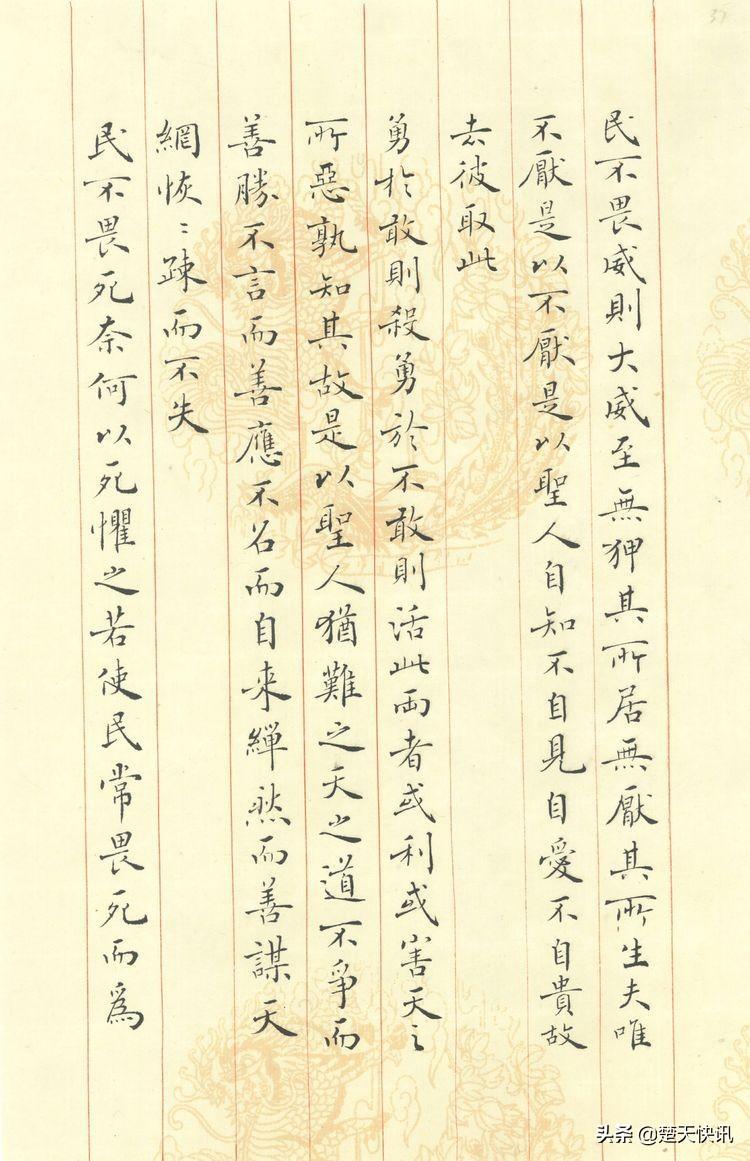 37
民不畏威則大威至無狎其所居無厭其所生夫唯
不厭是以不厭是以聖人自知不自見自愛不自貴故
去彼取此
勇於敢則殺勇於不敢則活此兩者或利或害天之
所惡孰知其故是以聖人猶難之天之道不爭而
善勝不言而善應不名而自来繟然而善謀天
網恢〻踈而不失
民不畏死奈何以死懼之若使民常畏死而為
头条 @楚天快讯